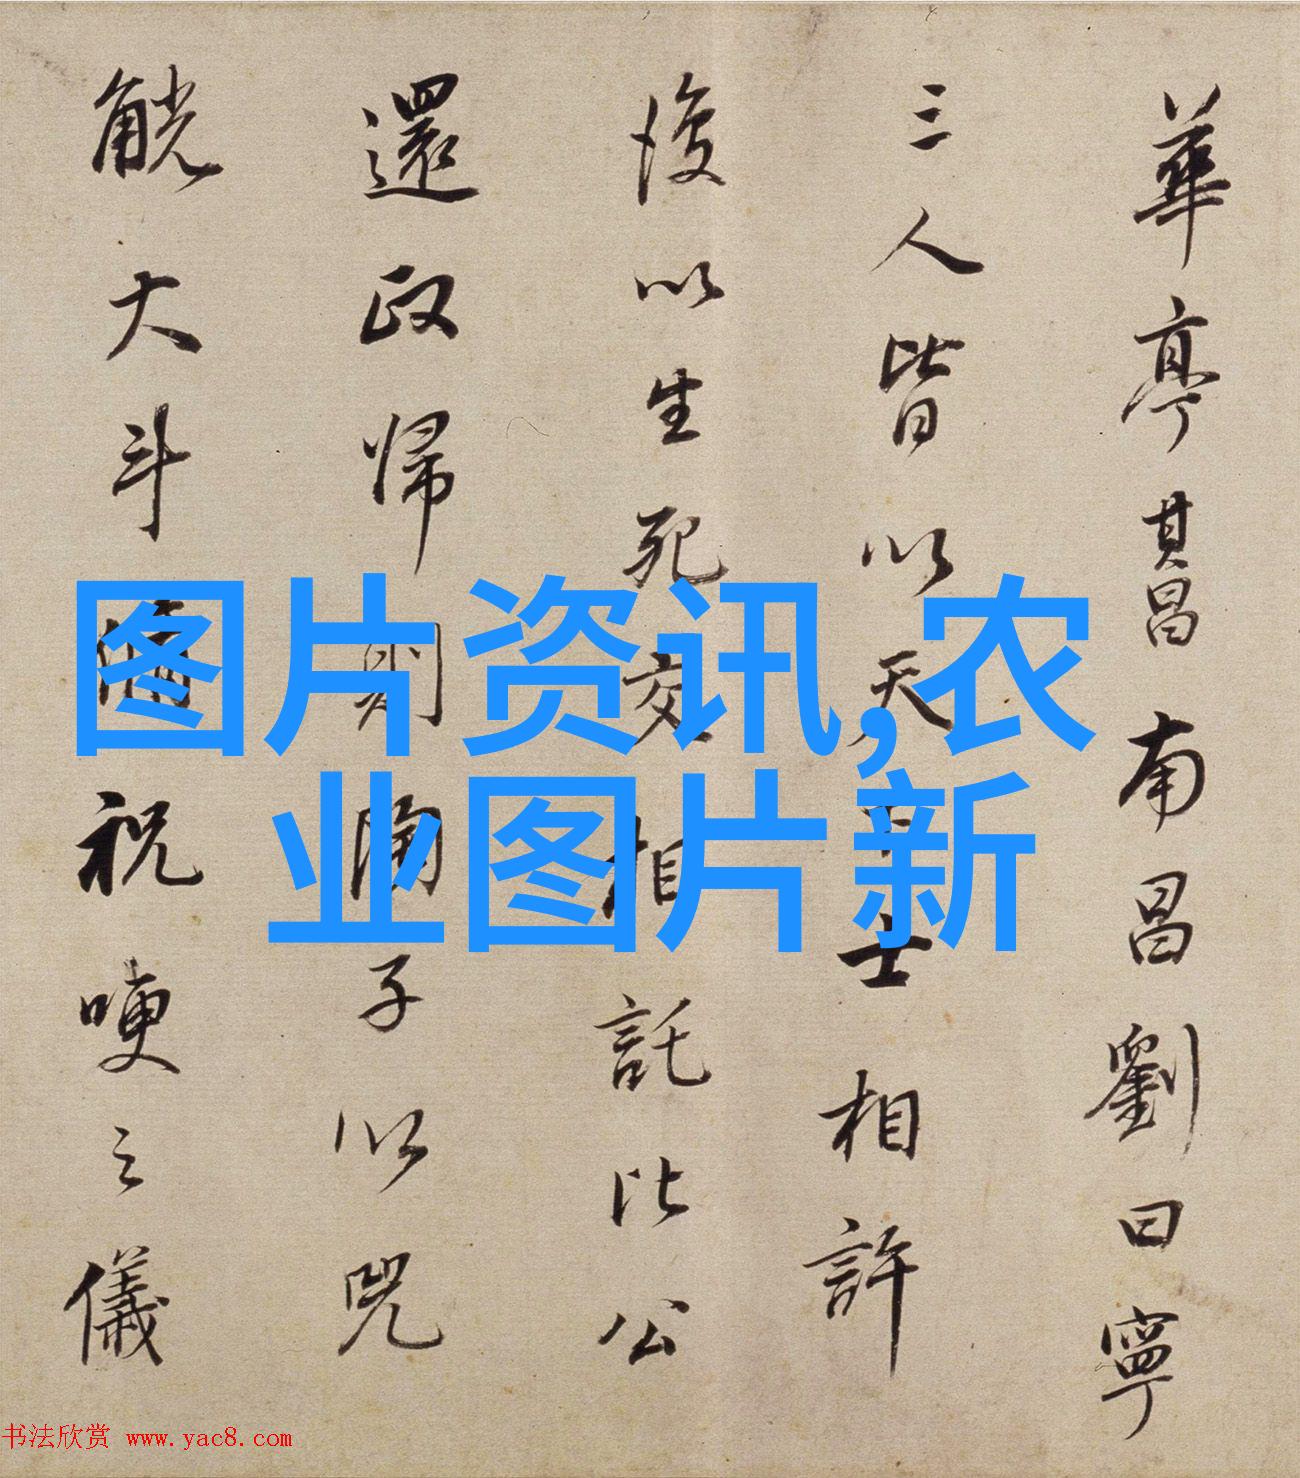 華亭其昌南昌劉曰寧
三人皆以天下士相許
後以生死交相託比公
還政歸則陶子以兕
觥大斗酒祝哽之儀
图片资讯,农
业图片新
书法欣赏 www.yac8.com